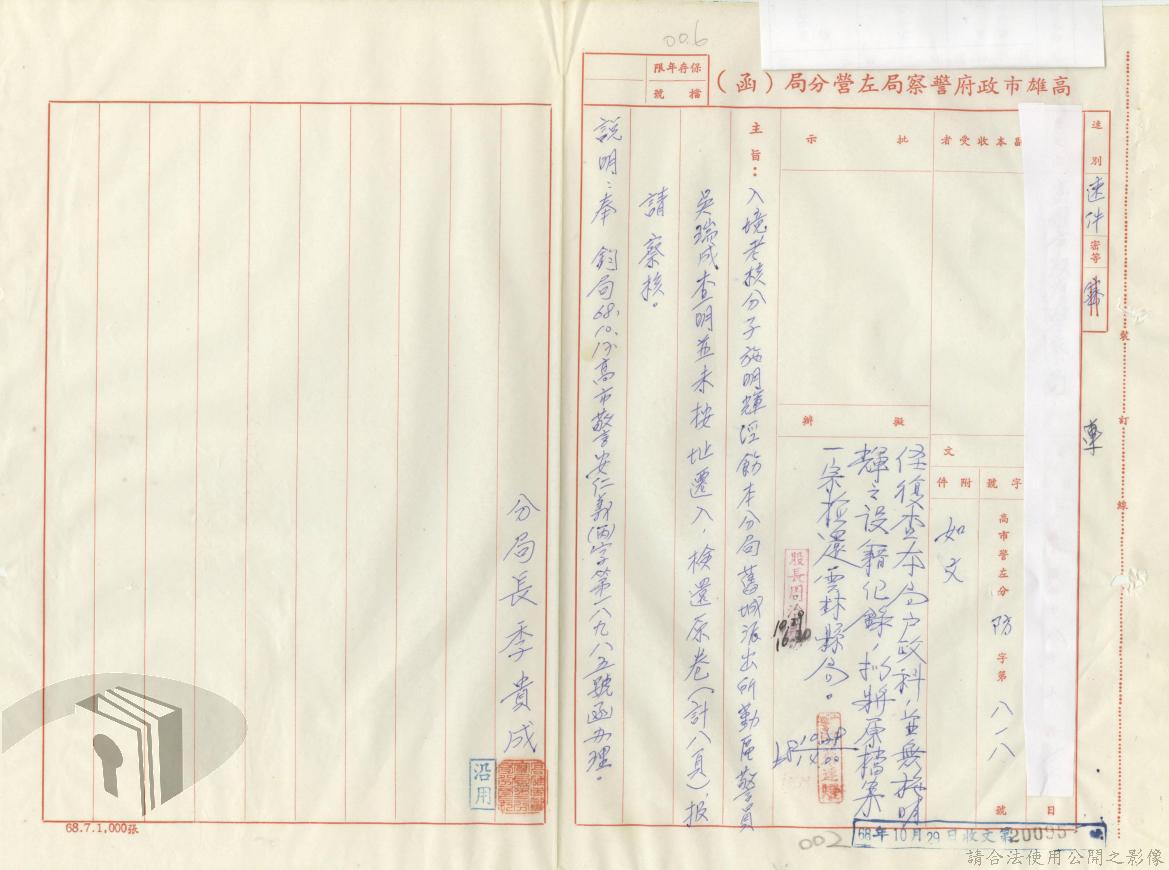 00.6
保存年限
檔號
高雄市政府警察局左營分局（函）
速別
速件
密等
裝
訂
線
副本收受者
批示
擬辦
文
字號
附件
高市警左分
防
字第
八一八
號
日
如文
經復查本局戶政科，並無施明
輝之設籍紀錄，擬將原檔案
一宗檢還雲林縣局。
主旨：入境考核分子施明輝經飭本分局舊城派出所勤區警員
吳瑞成查明並未按址遷入，檢還原卷（計八頁），報
請察核。
說明：奉 鈞局68.10.13高市警安仁義(丙)字第一八九八五號函辦理。
分局長季貴成
沿用
68.7.1,000張
002
68年10月29日收文第20095
請合法使用公開之影像